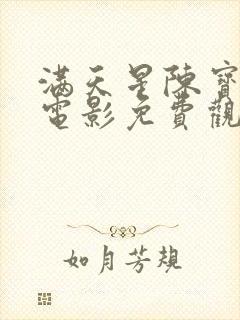 滿天星陳寶
電影免費觀
如月芳規